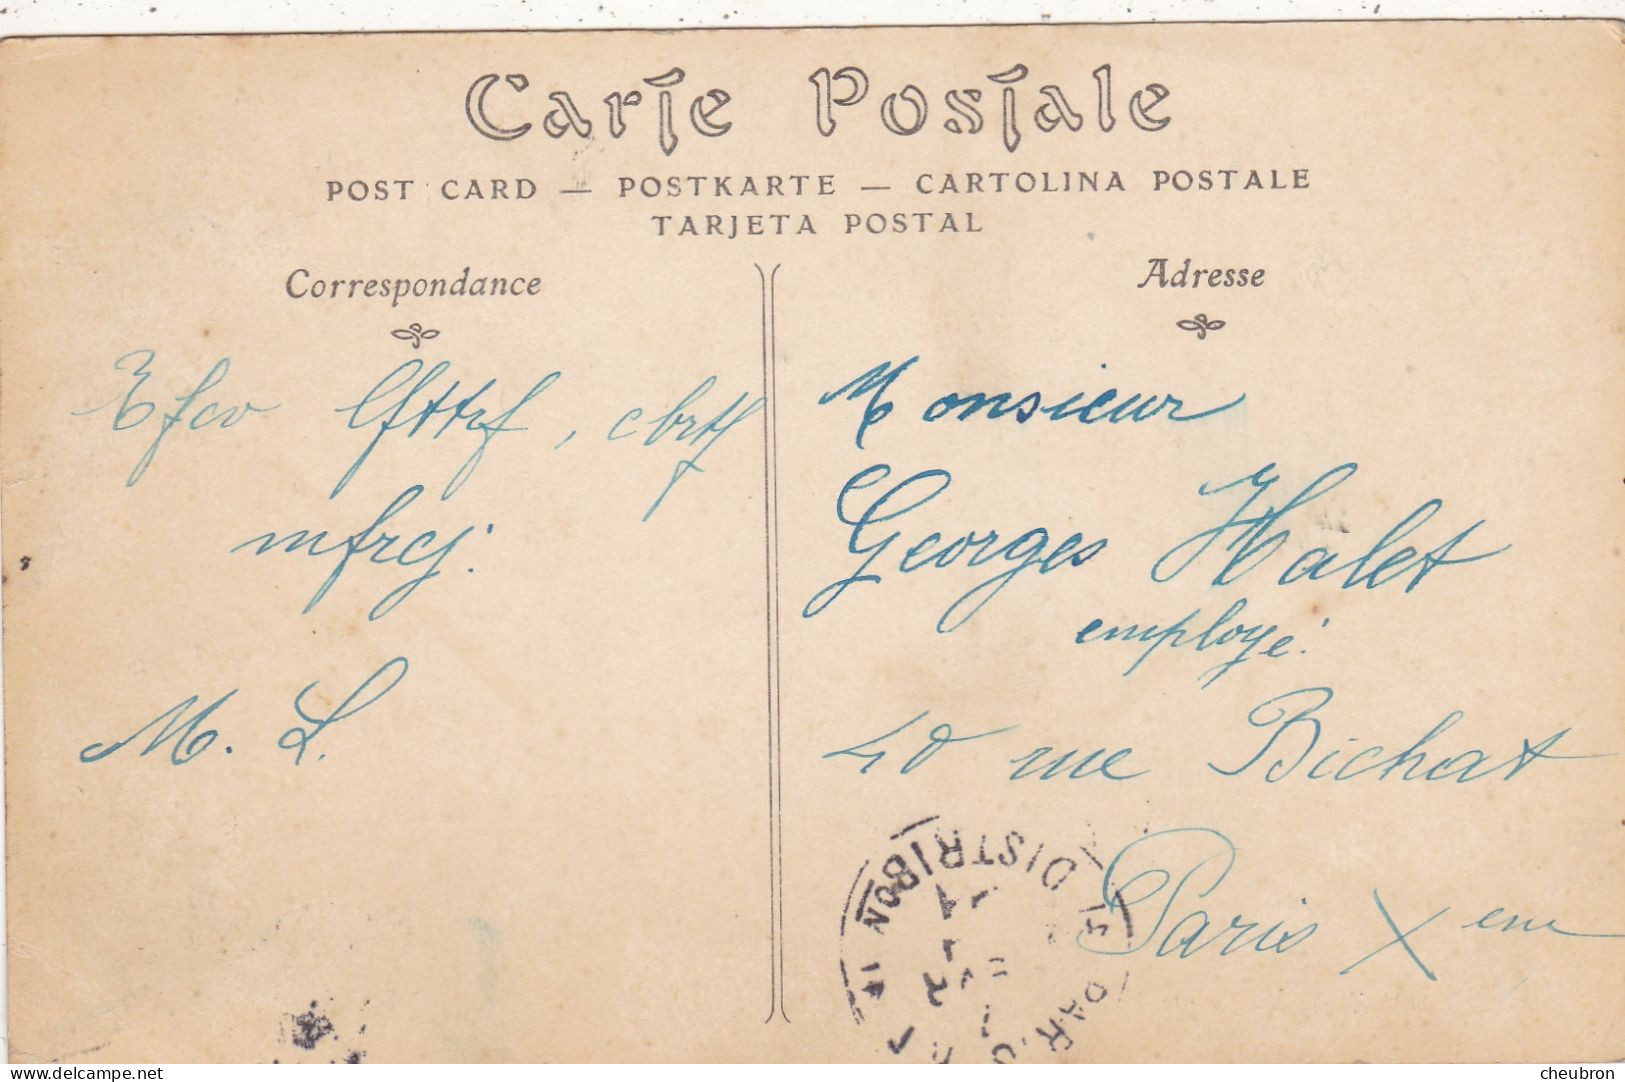 Carte Postale
POST CARD — POSTKARTE — CARTOLINA POSTALE
TARJETA POSTAL
Correspondance
Adresse
lfttrf, cbrtf
mfrcj.
M. L.
Monsieur
Georges Halet
employé
40 rue Bichat
Paris Xeme
DISTRIBON
PAR
delcampe.net
cheubron